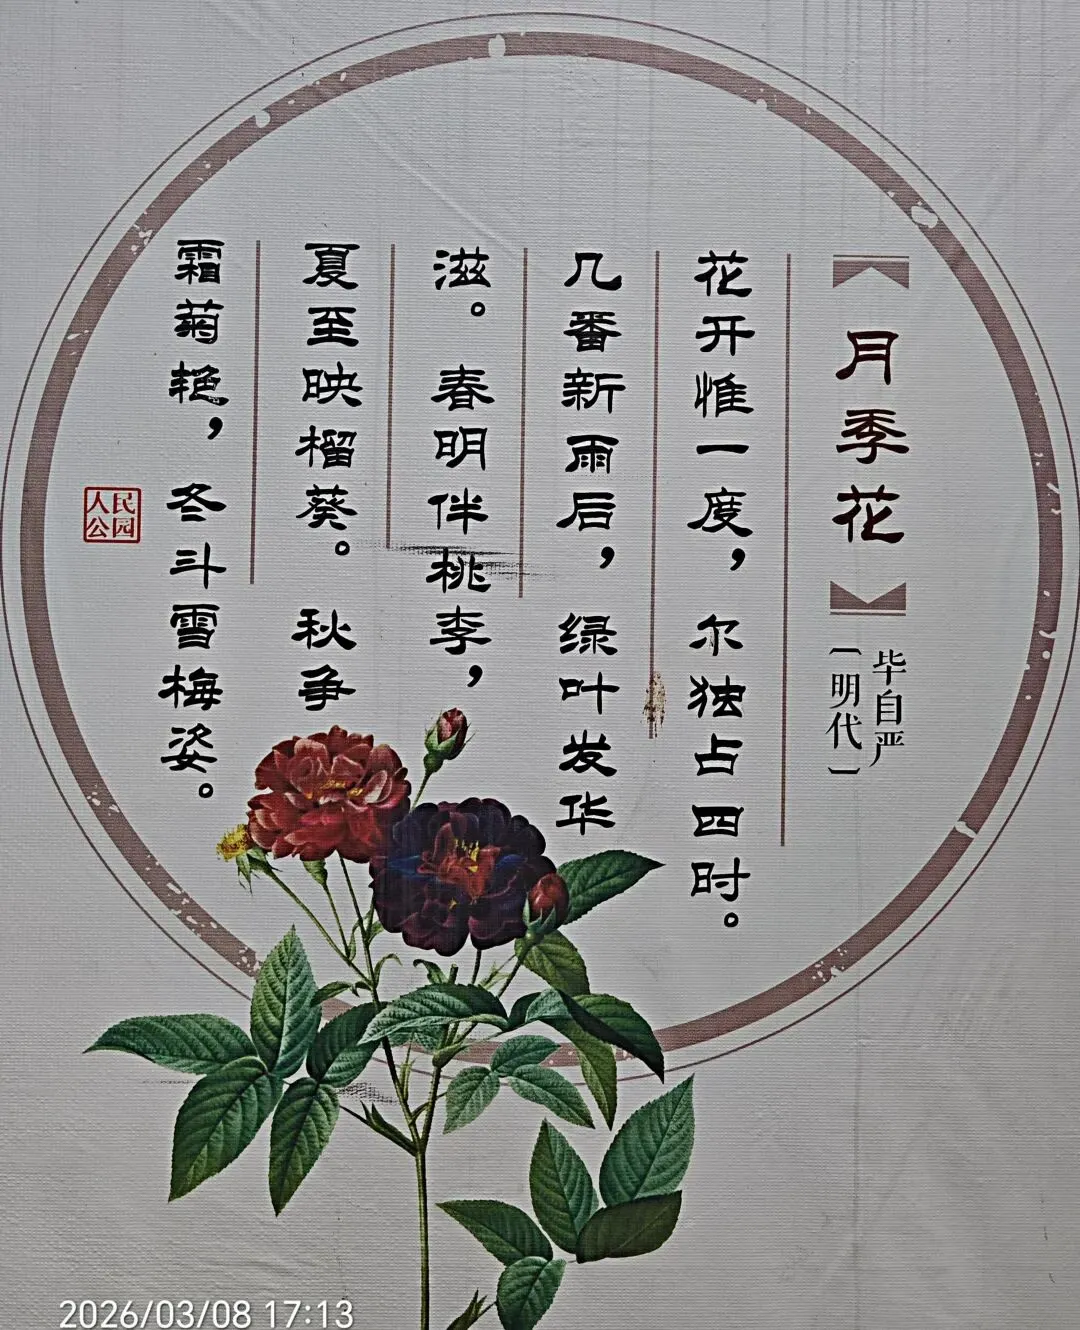 《月季花》
毕自严
〔明代〕
花开惟一度，尔独占四时。
几番新雨后，绿叶发华
滋。春明伴桃李，
夏至映榴葵。秋争
霜菊艳，冬斗雪梅姿。
人民
公园
2026/03/08 17:13